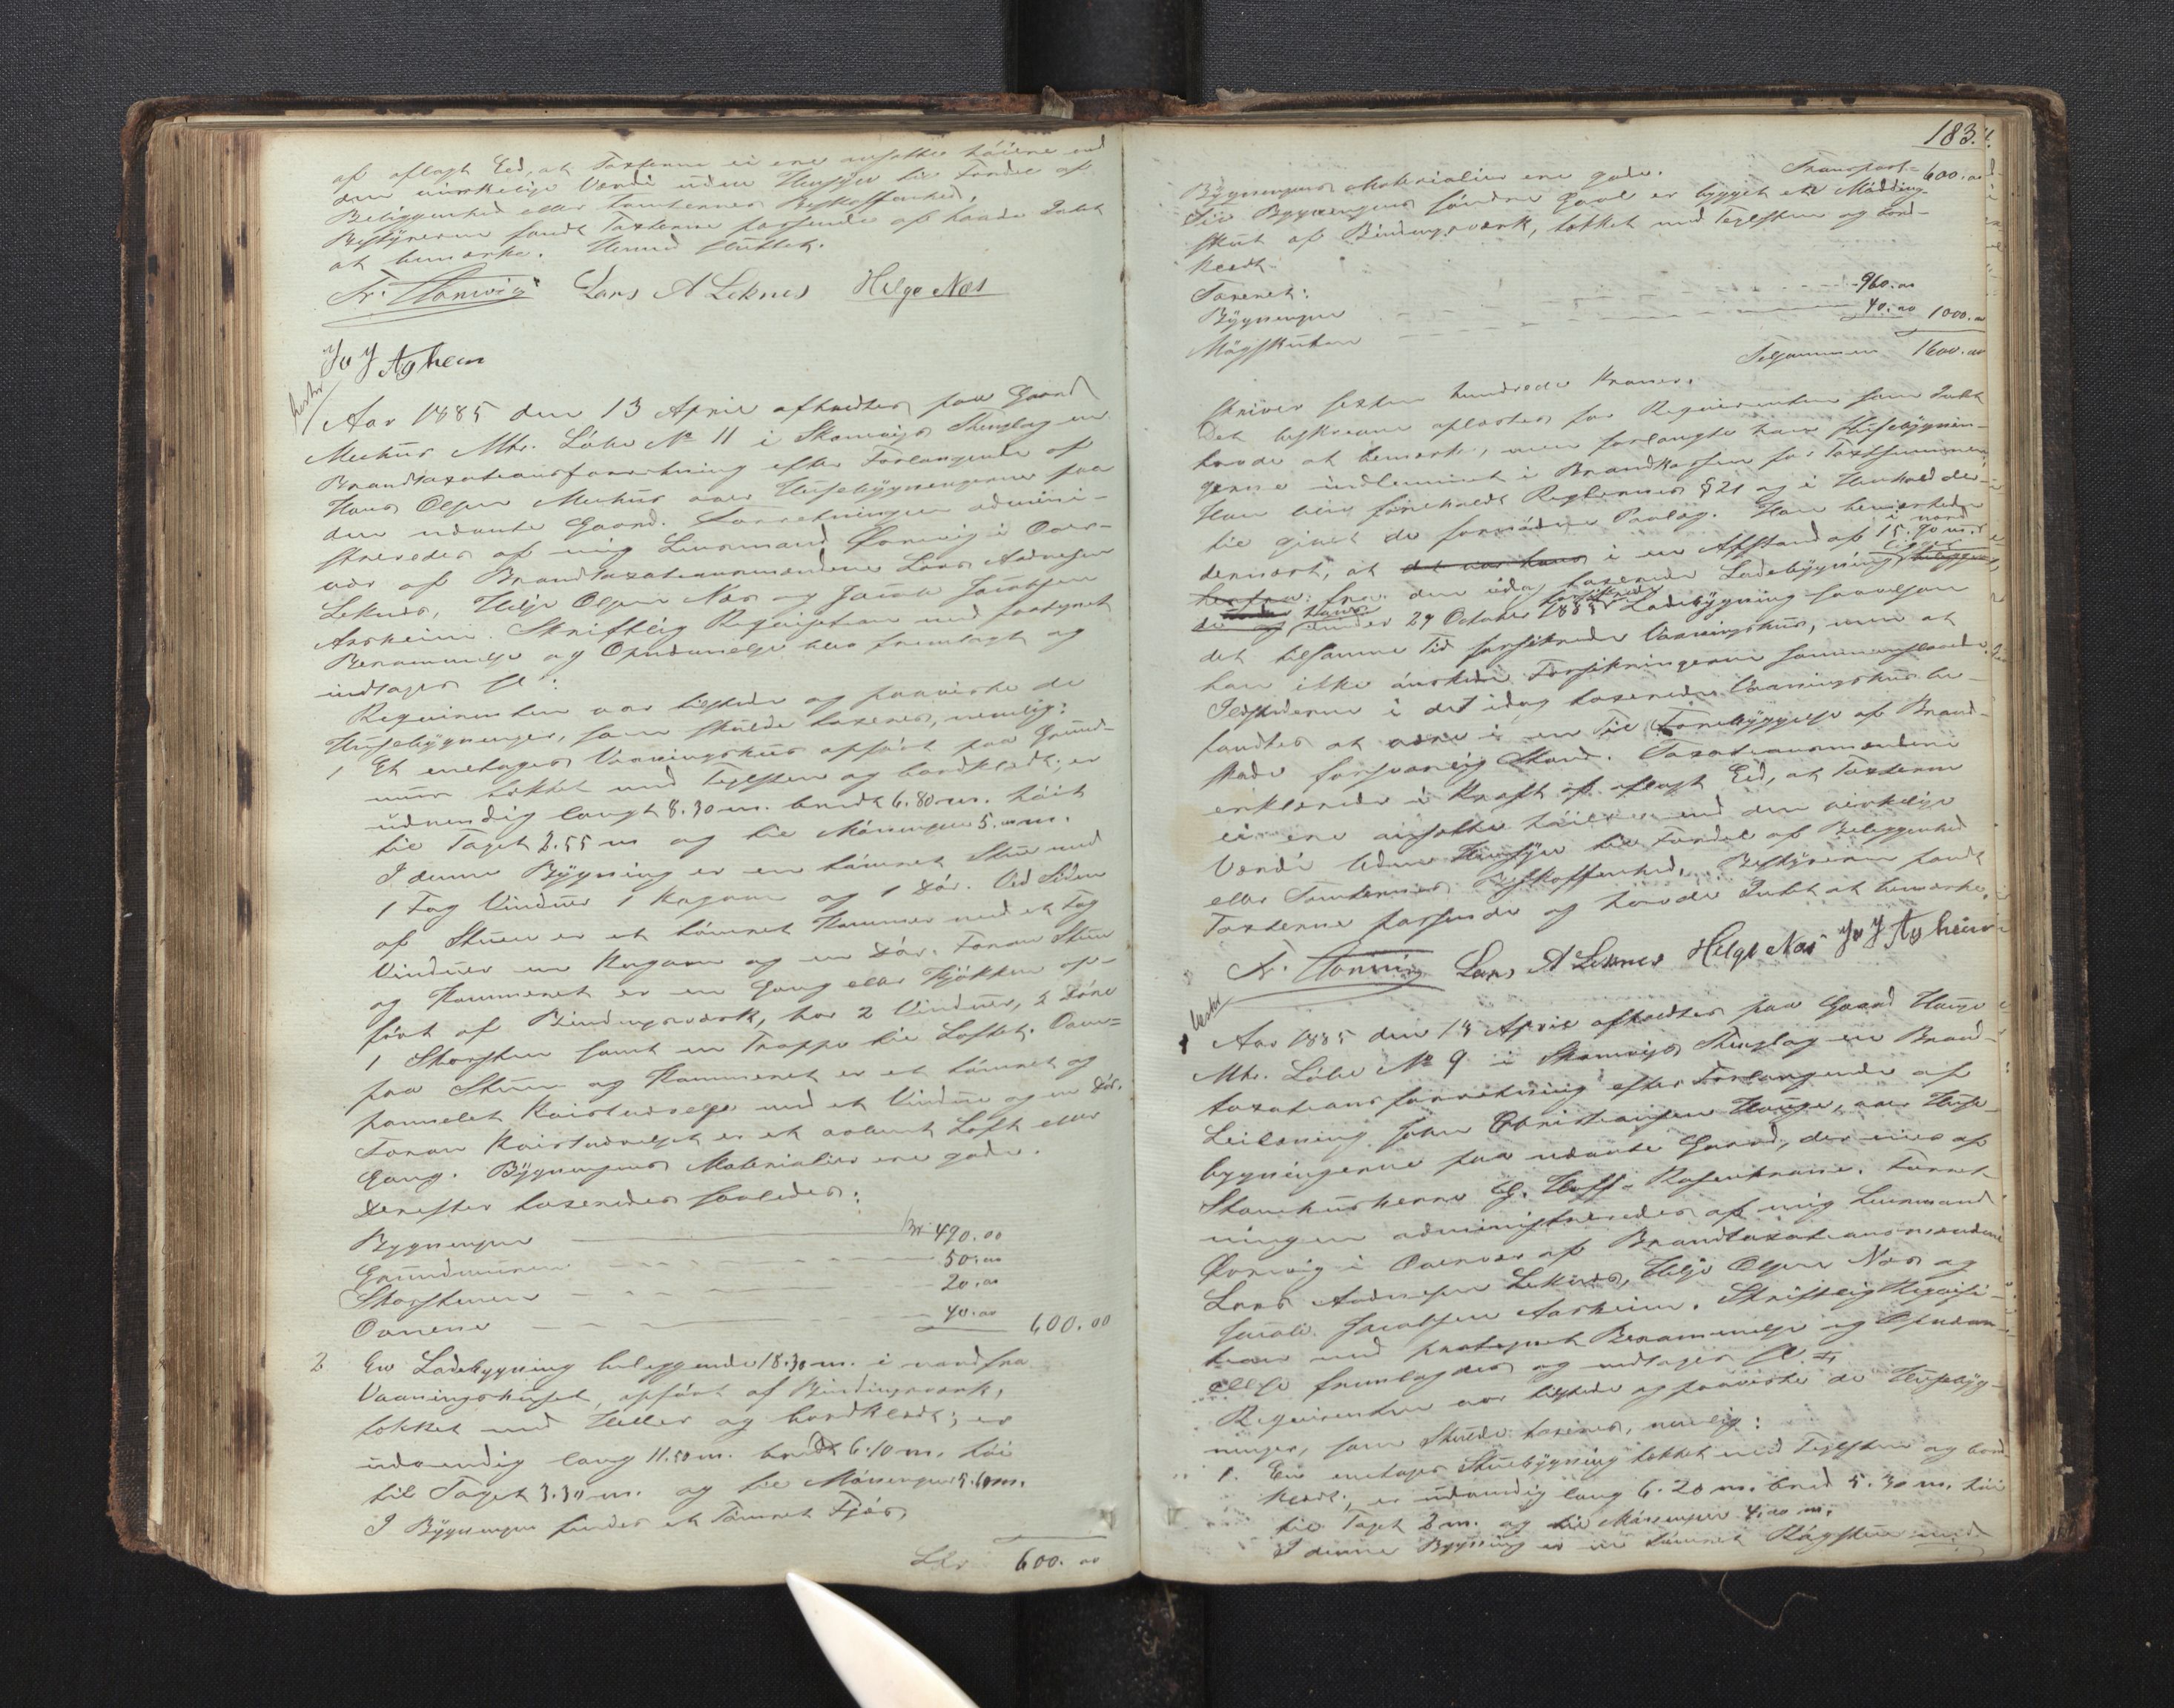 af aflagt Eed, at Taxterne ei ere ansatte høiere end
den virkelige Værdi uden Hensyn til Fordel af
Beliggenhed eller Tomternes Beskaffenhed.
Bestyreren fandt Taxterne passende og havde Intet
at bemærke. Hermed sluttet.
Lars A Leknes Helge Næs
Aar 1885 den 13 April afholdtes paa Gaard
Mehus Mtr. Løbe No 11 i Skaneviks Thinglag en
Brandtaxationsforretning efter Forlangende af
Hans Olsen Mehus over Husebygningerne paa
den nævnte Gaard. Forretningen admini-
streredes af mig Lensmand i Over-
vær af Brandtaxationsmændene Lars Andresen
Leknes, Helge Olsen Næs og Jacob Jacobsen
Skriftlig Reqvisition med paategnet
Berammelse og Opnævnelse blev fremlagt og
indtages
Reqvirenten var tilstede og paaviste de
Husebygninger, som skulde taxeres, nemlig:
1 Et enetages Vaaningshus opført paa Grund-
muur tækket med Teglsten og bordklædt; er
udvendig langt 8.30 m. bredt 6.80 m. høit
til Taget 2.55 m og til Mønningen 5.00 m.
I denne Bygning er en tømret Stue med
1 Fag Vinduer 1 Kagovn og 1 Dør. Ved Siden
af Stuen er et tømret Kammer med et Fag
Vinduer en Kagovn og en Dør. Foran Stuen
og Kammeret er en Gang eller Kjøkken op-
ført af Bindingsværk, har 2 Vinduer, 2 Døre
1 Skorsten samt en Trappe til Loftet. Oven-
paa Stuen og Kammeret er et tømret og
pannelet Kvistværelse med et Vindue og en Dør.
Foran Kvistværelset er et aabent Loft eller
Gang. Bygningens Materialier ere gode.
Derefter taxeredes saaledes:
Bygningen Kr 490.00
Grundmuren 50.00
Skorstenen 20.00
Ovnene 40.00 600.00
2 En Ladebygning beliggende 18.30 m. i nord fra
Vaaningshuset, opført af Bindingsværk,
tækket med Heller og bordklædt; er
udvendig lang 11.50 m. bredt 6.10 m. høi
til Taget 3.30 m. og til Mønningen 5.60 m.
I Bygningen findes et Tømret Fjøs
Lbr 600.00
183.
Transport 600.00
Bygningens Materialier ere gode.
Til Bygningens søndre Gavl er bygget et Mødding-
skut af Bindingsværk, tækket med Teglsten og bord-
klædt.
Taxeret:
Bygningen 960.00
Møgskuten 40.00 1000.00
Tilsammen 1600.00
skriver sexten hundrede Kroner.
Det beskrevne oplæstes for Reqvirenten som Intet
havde at bemærke, men forlangte han Husebygnin-
gerne indlemmet i Brandkassen for Taxtsummen
Han blev foreholdt Reglernes § 21 og i Henhold der-
til givet de fornødne Paalæg. Han bemærkede
dernæst, at det var hans i en Afstand af 15.70 m. i nord
fra den idag taxerede Ladebygning ligger
hans under 29 October 1885 forsikrede Ladebygning saavelsom
det tilsamme Tid forsikrede Vaaningshus, men at
han ikke ønskede Forsikringerne sammenslaaede.
Ildstederne i det idag taxerede Vaaningshus be-
fandtes at være i en til Forebyggelse af Brand-
skade forsvarlig Stand. Taxationsmændene
erklærede i Kraft af aflagt Eed, at Taxterne
ei ere ansatte høiere end den virkelige
Værdi Uden Hensyn til Fordel af Beliggenhed
eller Tomternes Beskaffenhed. Bestyreren fandt
Taxterne passende og havde Intet at bemærke.
Lars A Leknes Helge Næs
Aar 1885 den 13 April afholdtes paa Gaard Hauge
Mtr. Løbe No 9 i Skaneviks Thinglag en Brand-
taxationsforretning efter Forlangende af
Leilænding John Christiansen Hauge, over Huse-
bygningerne paa nævnte Gaard, der eies af
Stamhusherre G. Hoff-Rosenkrone. Forret-
ningen administreredes af mig Lensmand
i Overvær af Brandtaxationsmændene
Lars Andresen Leknes, Helge Olsen Næs og
Jacob Jacobsen Skriftlig Reqvisi-
tion med paategnet Berammelse og Opnævn-
else fremlagdes og indtages
Reqvirenten var tilstede og paaviste de Husebyg-
ninger, som skulde taxeres, nemlig:
1. En enetages Stuebygning tækket med Teglsten og bord-
klædt; er udvendig lang 6.20 m. bred 5.30 m. høi
til Taget 2 m. og til Mønningen 4.00 m.
I denne Bygning er en tømret Røgstue med